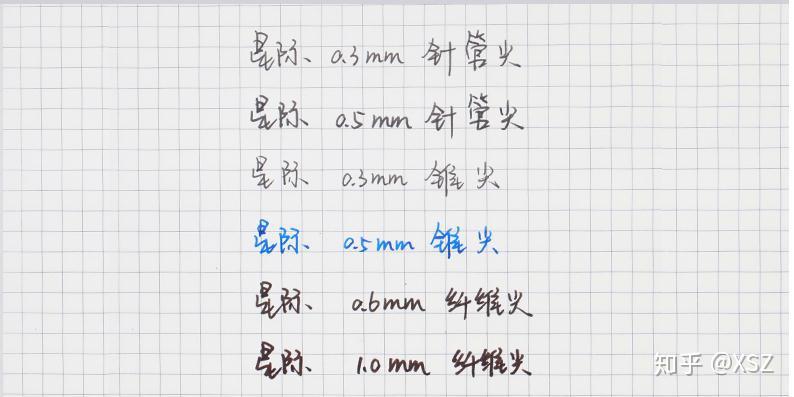 星际 0.3mm 针管尖
星际 0.5mm 针管尖
星际 0.3mm 锥尖
星际 0.5mm 锥尖
星际 0.6mm 纤维尖
星际 1.0mm 纤维尖
知乎 @XSZ